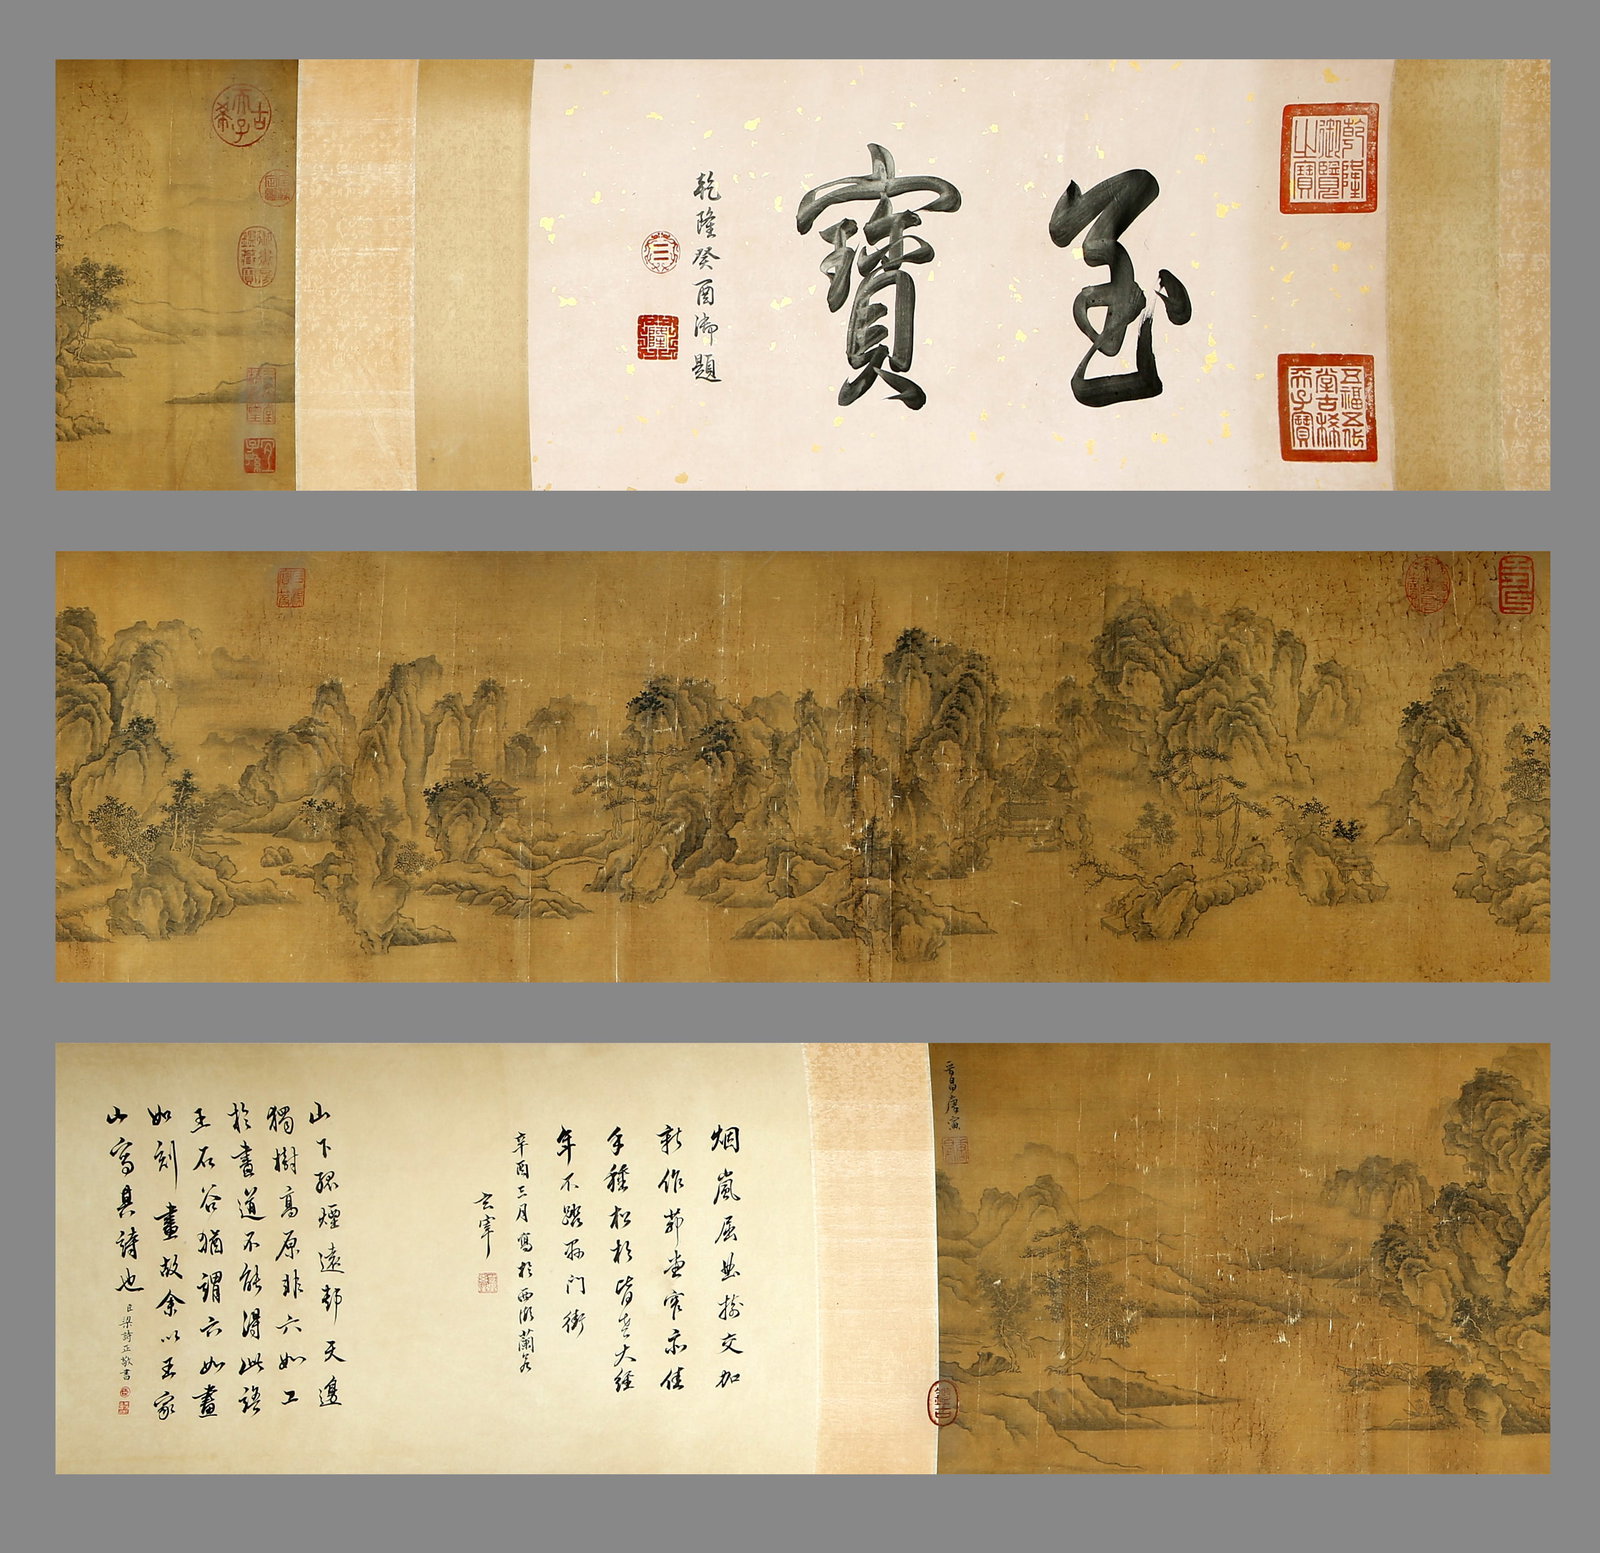 乾隆御覽之寶
五福五代堂古稀天子寶
至寶
乾隆癸酉御題
古希天子
晉昌唐寅
烟嵐屈曲樹交加
新作茆堂窄亦佳
手種松杉皆老大經
年不踏縣門街
辛酉三月寫於西湖蘭若
玄宰
山下孤煙遠邨天邊
獨樹高原非六如工
於畫道不能得此語
王石谷猶謂六如畫
如刻畫故余以王家
山寫其詩也
臣梁詩正敬書